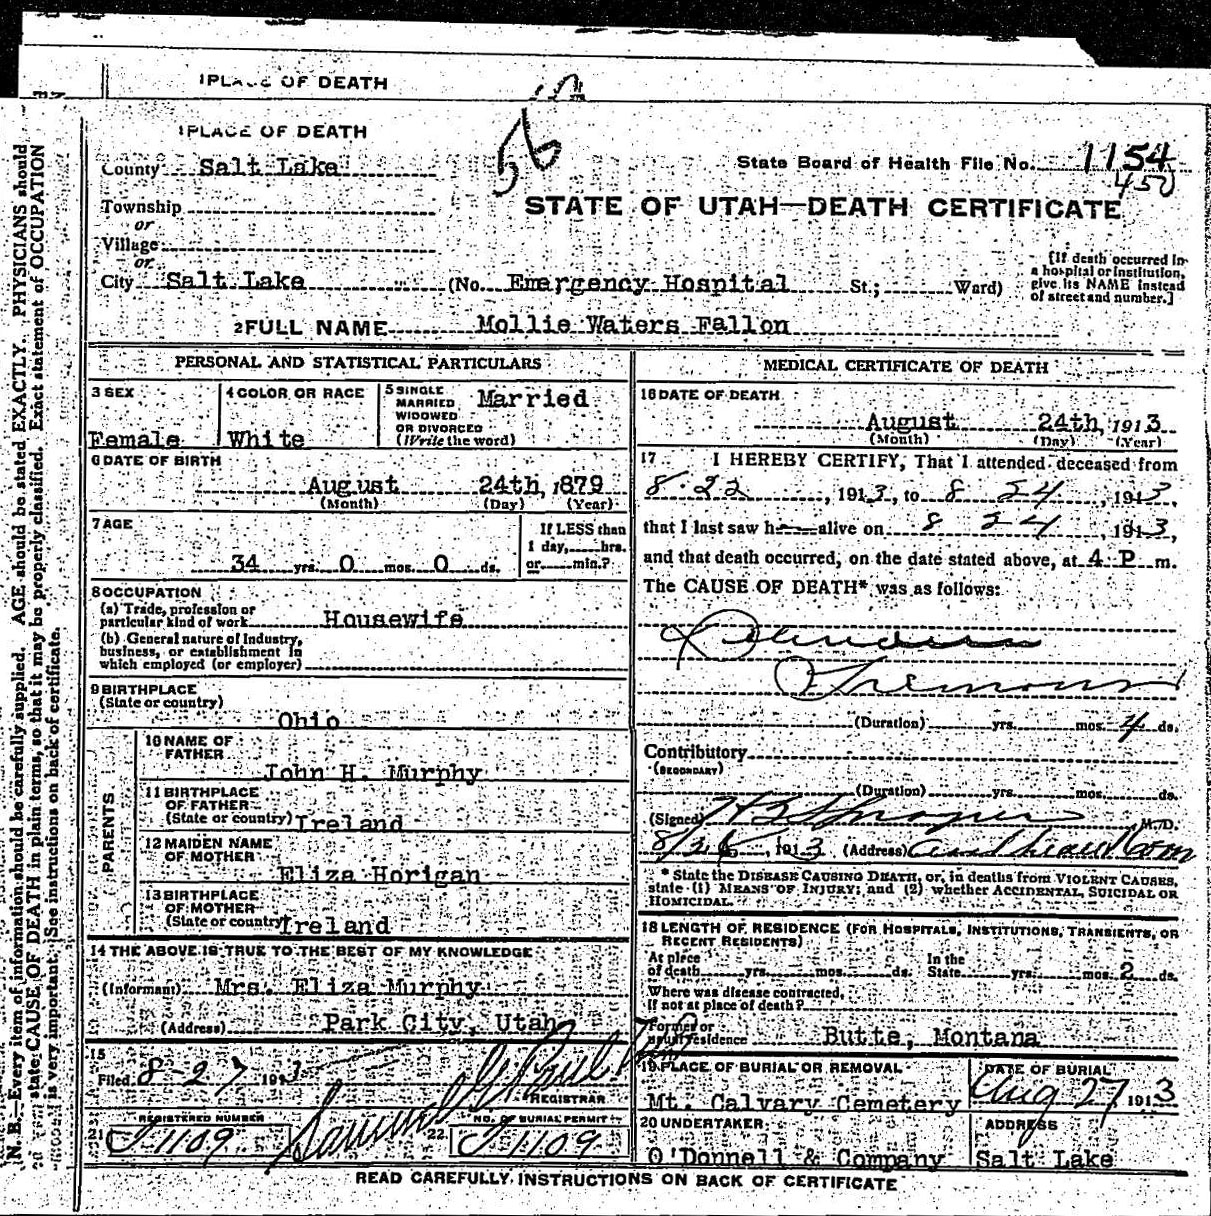 1 PLACE OF DEATH
56
1 PLACE OF DEATH
County Salt Lake
State Board of Health File No. 1154
450
Township
or
Village
or
STATE OF UTAH—DEATH CERTIFICATE
City Salt Lake (No. Emergency Hospital St.; Ward)
[If death occurred in
a hospital or institution,
give its NAME instead
of street and number.]
2 FULL NAME Mollie Waters Fallon
PERSONAL AND STATISTICAL PARTICULARS
3 SEX
Female
4 COLOR OR RACE
White
5 SINGLE
MARRIED
WIDOWED
OR DIVORCED
(Write the word)
Married
6 DATE OF BIRTH
August 24th, 1879
(Month) (Day) (Year)
7 AGE
34 yrs. 0 mos. 0 ds.
If LESS than
1 day, hrs.
or min.?
8 OCCUPATION
(a) Trade, profession or
particular kind of work Housewife
(b) General nature of industry,
business, or establishment in
which employed (or employer)
9 BIRTHPLACE
(State or country)
Ohio
PARENTS
10 NAME OF
FATHER
John H. Murphy
11 BIRTHPLACE
OF FATHER
(State or country) Ireland
12 MAIDEN NAME
OF MOTHER
Eliza Horigan
13 BIRTHPLACE
OF MOTHER
(State or country) Ireland
14 THE ABOVE IS TRUE TO THE BEST OF MY KNOWLEDGE
(Informant) Mrs. Eliza Murphy
(Address) Park City, Utah
15
Filed 8-27 1913
REGISTRAR
REGISTERED NUMBER
21 J 1109
NO. OF BURIAL PERMIT
22 J 1109
MEDICAL CERTIFICATE OF DEATH
16 DATE OF DEATH
August 24th, 1913
(Month) (Day) (Year)
17 I HEREBY CERTIFY, That I attended deceased from
8-22, 1913, to 8 24, 1913,
that I last saw h alive on 8 24, 1913,
and that death occurred, on the date stated above, at 4 P m.
The CAUSE OF DEATH* was as follows:
Delirium
Tremens
(Duration) yrs. mos. 4 ds.
Contributory
(SECONDARY)
(Duration) yrs. mos. ds.
(Signed) M. D.
8/26, 1913 (Address)
* State the DISEASE CAUSING DEATH, or, in deaths from VIOLENT CAUSES,
state (1) MEANS OF INJURY; and (2) whether ACCIDENTAL, SUICIDAL OR
HOMICIDAL.
18 LENGTH OF RESIDENCE (FOR HOSPITALS, INSTITUTIONS, TRANSIENTS, OR
RECENT RESIDENTS)
At place
of death yrs. mos. ds.
In the
State yrs. mos. 2 ds.
Where was disease contracted,
if not at place of death?
Former or
usual residence Butte, Montana
19 PLACE OF BURIAL OR REMOVAL
Mt. Calvary Cemetery
DATE OF BURIAL
Aug 27 1913
20 UNDERTAKER
O'Donnell & Company
ADDRESS
Salt Lake
READ CAREFULLY INSTRUCTIONS ON BACK OF CERTIFICATE
N. B.—Every item of information should be carefully supplied. AGE should be stated EXACTLY. PHYSICIANS should
state CAUSE OF DEATH in plain terms, so that it may be properly classified. Exact statement of OCCUPATION
is very important. See instructions on back of certificate.